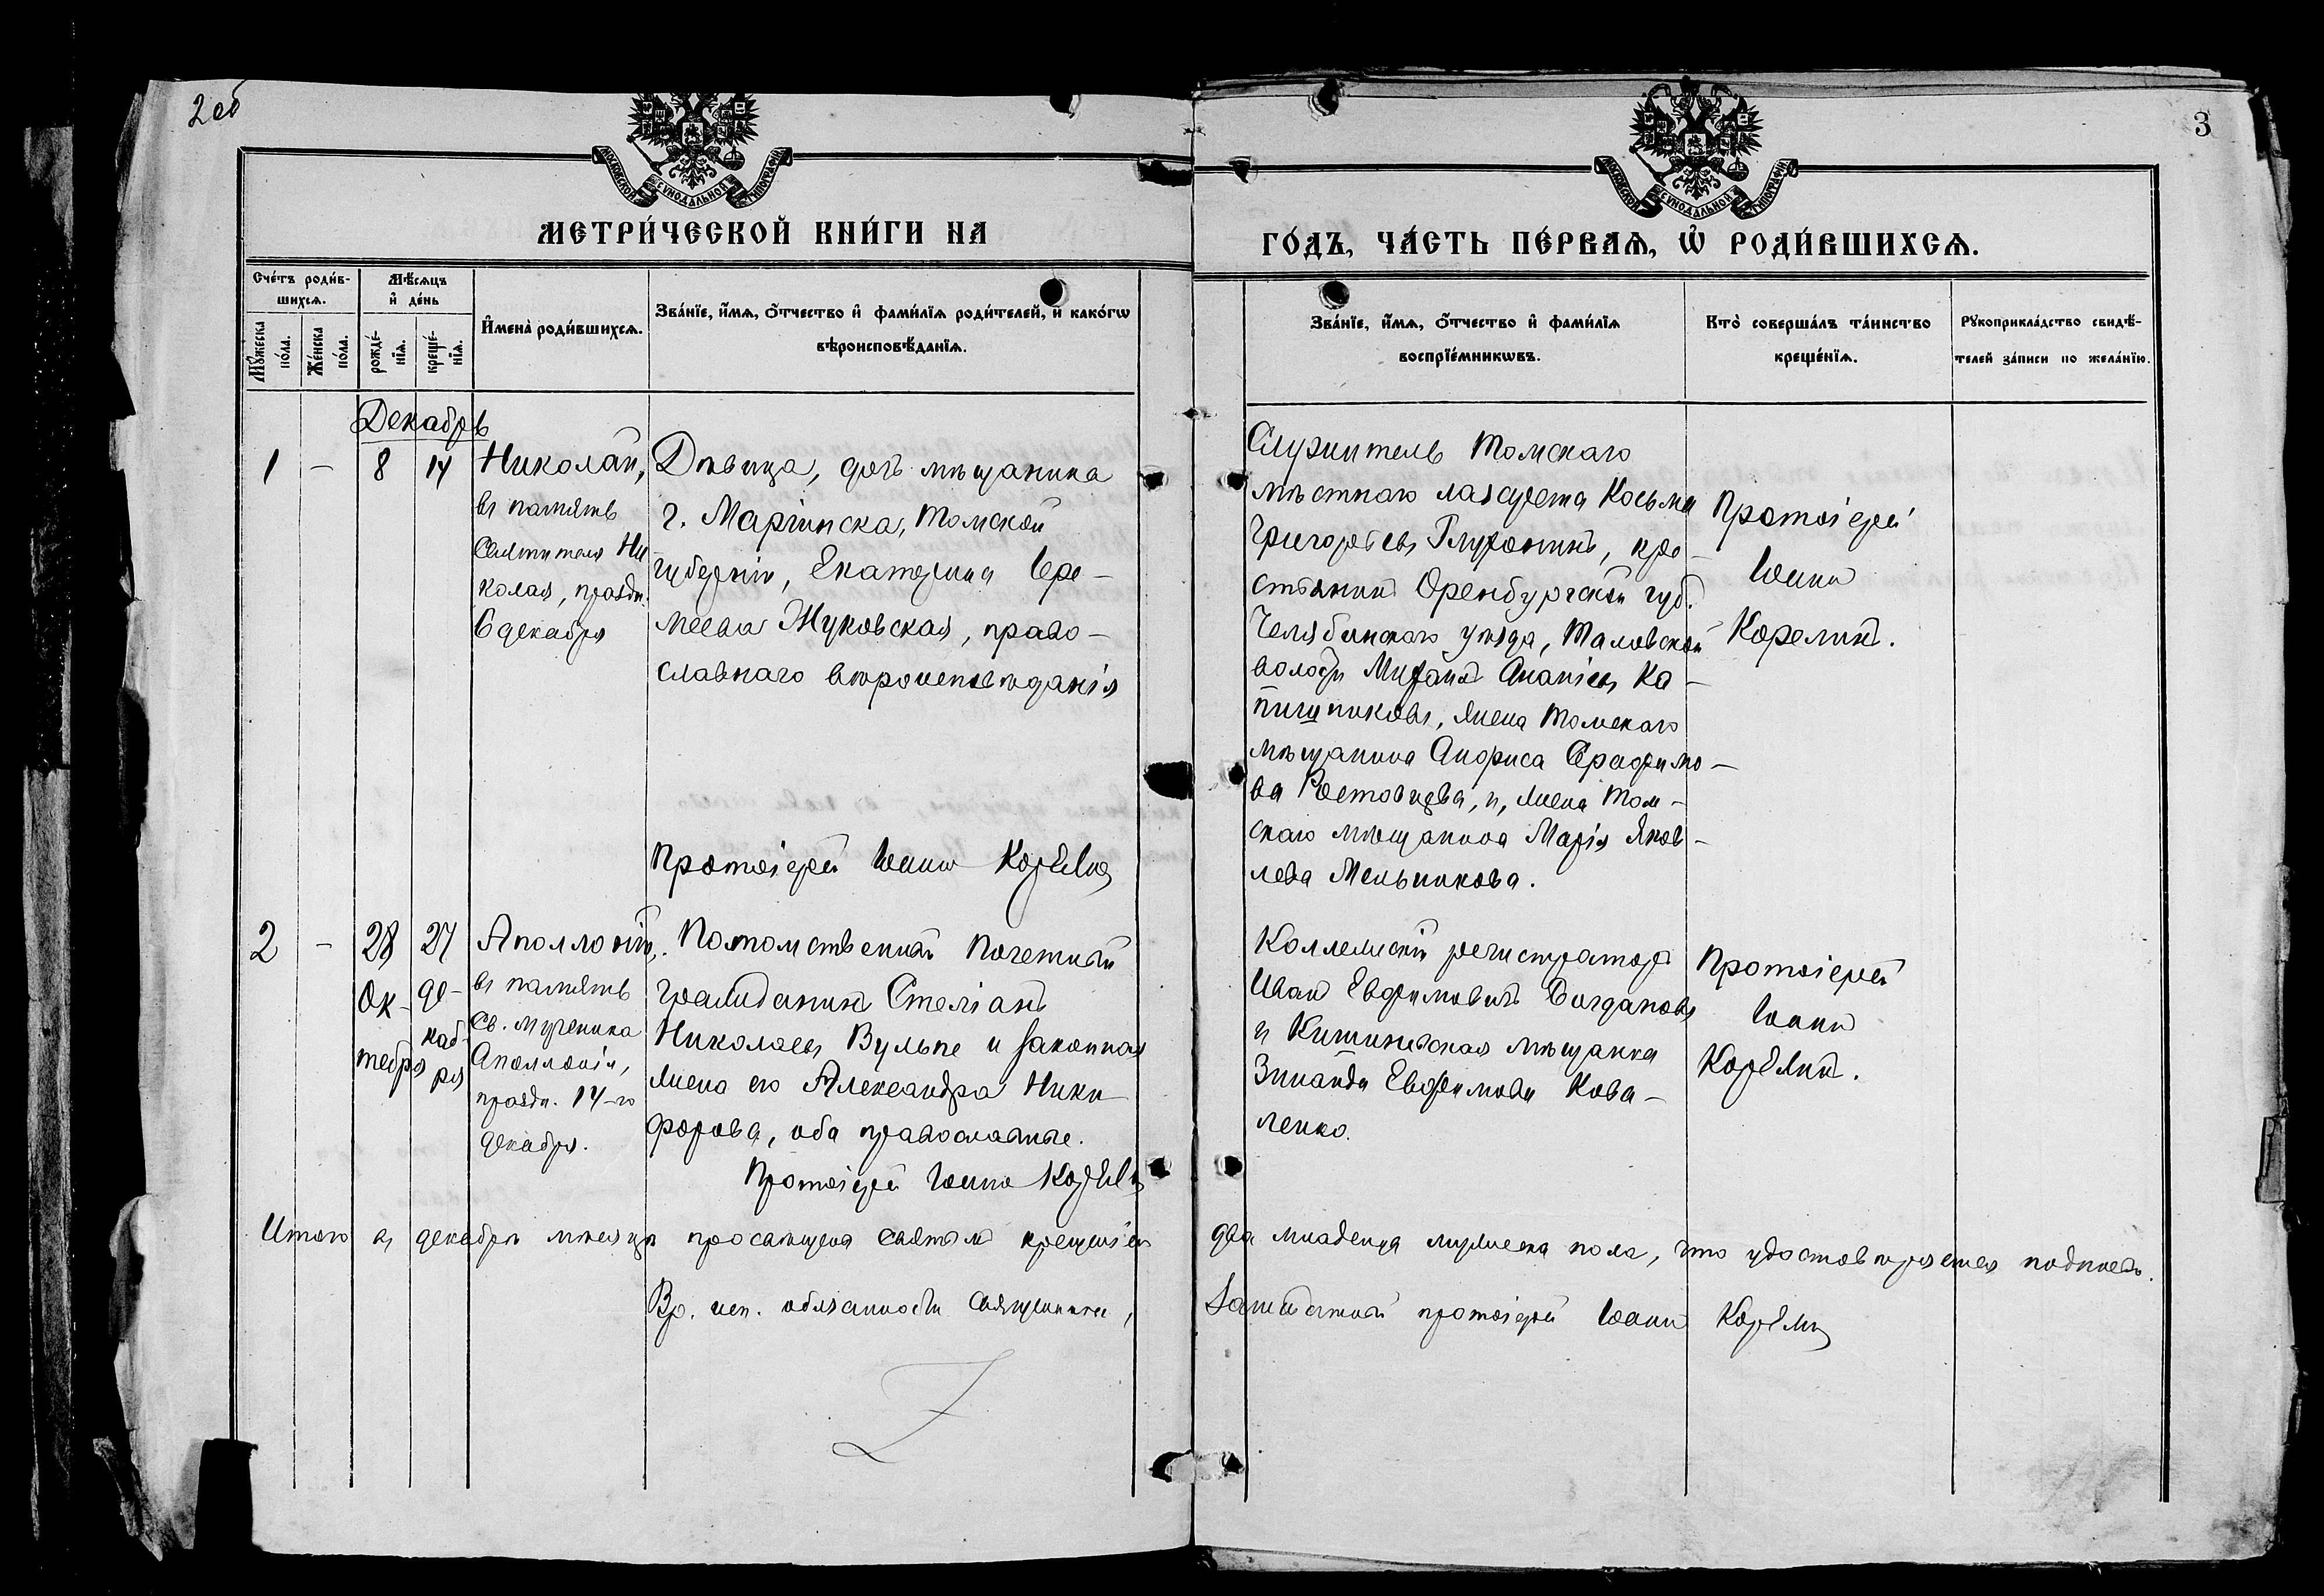 2об
3
МОСКОВСКОЙ СѴНОДАЛЬНОЙ ТИПОГРАФІИ
МОСКОВСКОЙ СѴНОДАЛЬНОЙ ТИПОГРАФІИ
МЕТРИ́ЧЕСКОЙ КНИ́ГИ НА
ГО́ДЪ, ЧА́СТЬ ПЕ́РВАѦ, Ѡ҆ РОДИ́ВШИХСѦ.
Сче́тъ роди́в-
шихсѧ.
Мꙋ́жеска
по́ла.
Же́нска
по́ла.
Мѣ́сѧцъ
и҆ де́нь
рожде́-
нїѧ.
креще́-
нїѧ.
И҆мена̀ роди́вшихсѧ.
Зва́нїе, и҆́мѧ, ѻ҆́тчество и҆ фами́лїѧ роди́телей, и҆ како́гѡ
вѣроисповѣ́данїѧ.
Зва́нїе, и҆́мѧ, ѻ҆́тчество и҆ фами́лїѧ
воспрїе́мникѡвъ.
Кто̀ соверша́лъ та́инство
креще́нїѧ.
Рꙋкоприкла́дство свидѣ́-
телей за́писи по жела́нїю.
Декабрь
1 – 8 14
Николай,
въ память
Святителя Ни
колая, праздн.
6 декабря
Дѣвица, дочь мѣщанина
г. Маріинска, Томской
губерніи, Екатерина Ере-
меева Жуковская, право-
славнаго вѣроисповѣданія
Протоіерей Іоаннъ Корелинъ
Служитель Томскаго
мѣстнаго лазарета Косьма
Григорьевъ Глухонинъ, кре-
стьянинъ Оренбургской губ.
Челябинскаго уѣзда, Таловской
волости Михаилъ Ананіевъ Ка-
пишниковъ, жена Томскаго
мѣщанина Анфиса Серафимо-
ва Ростовцева, и, жена Том-
скаго мѣщанина Марія Яков-
лева Мельникова.
Протоіерей
Іоаннъ
Корелинъ.
2 – 28 27
Ок-
тября
де-
каб-
ря
Аполлоній,
въ память
Св. мученика
Аполлонія,
праздн. 14-го
декабря.
Потомственный Почетный
гражданинъ Стеліанъ
Николаевъ Вульпе и законная
жена его Александра Ники-
форова, оба православные.
Протоіерей Іоаннъ Корелинъ
Коллежскій регистраторъ
Иванъ Евфимовичъ Богдановъ
и Кишиневская мѣщанка
Зинаида Евфимова Кова-
ленко.
Протоіерей
Іоаннъ
Корелинъ.
Итого въ декабрѣ мѣсяцѣ просвѣщена святымъ крещеніемъ два младенца мужеска пола, что удостовѣряется подписью.
Вр. исп. обязанности священника, Заштатный протоіерей Іоаннъ Корелинъ